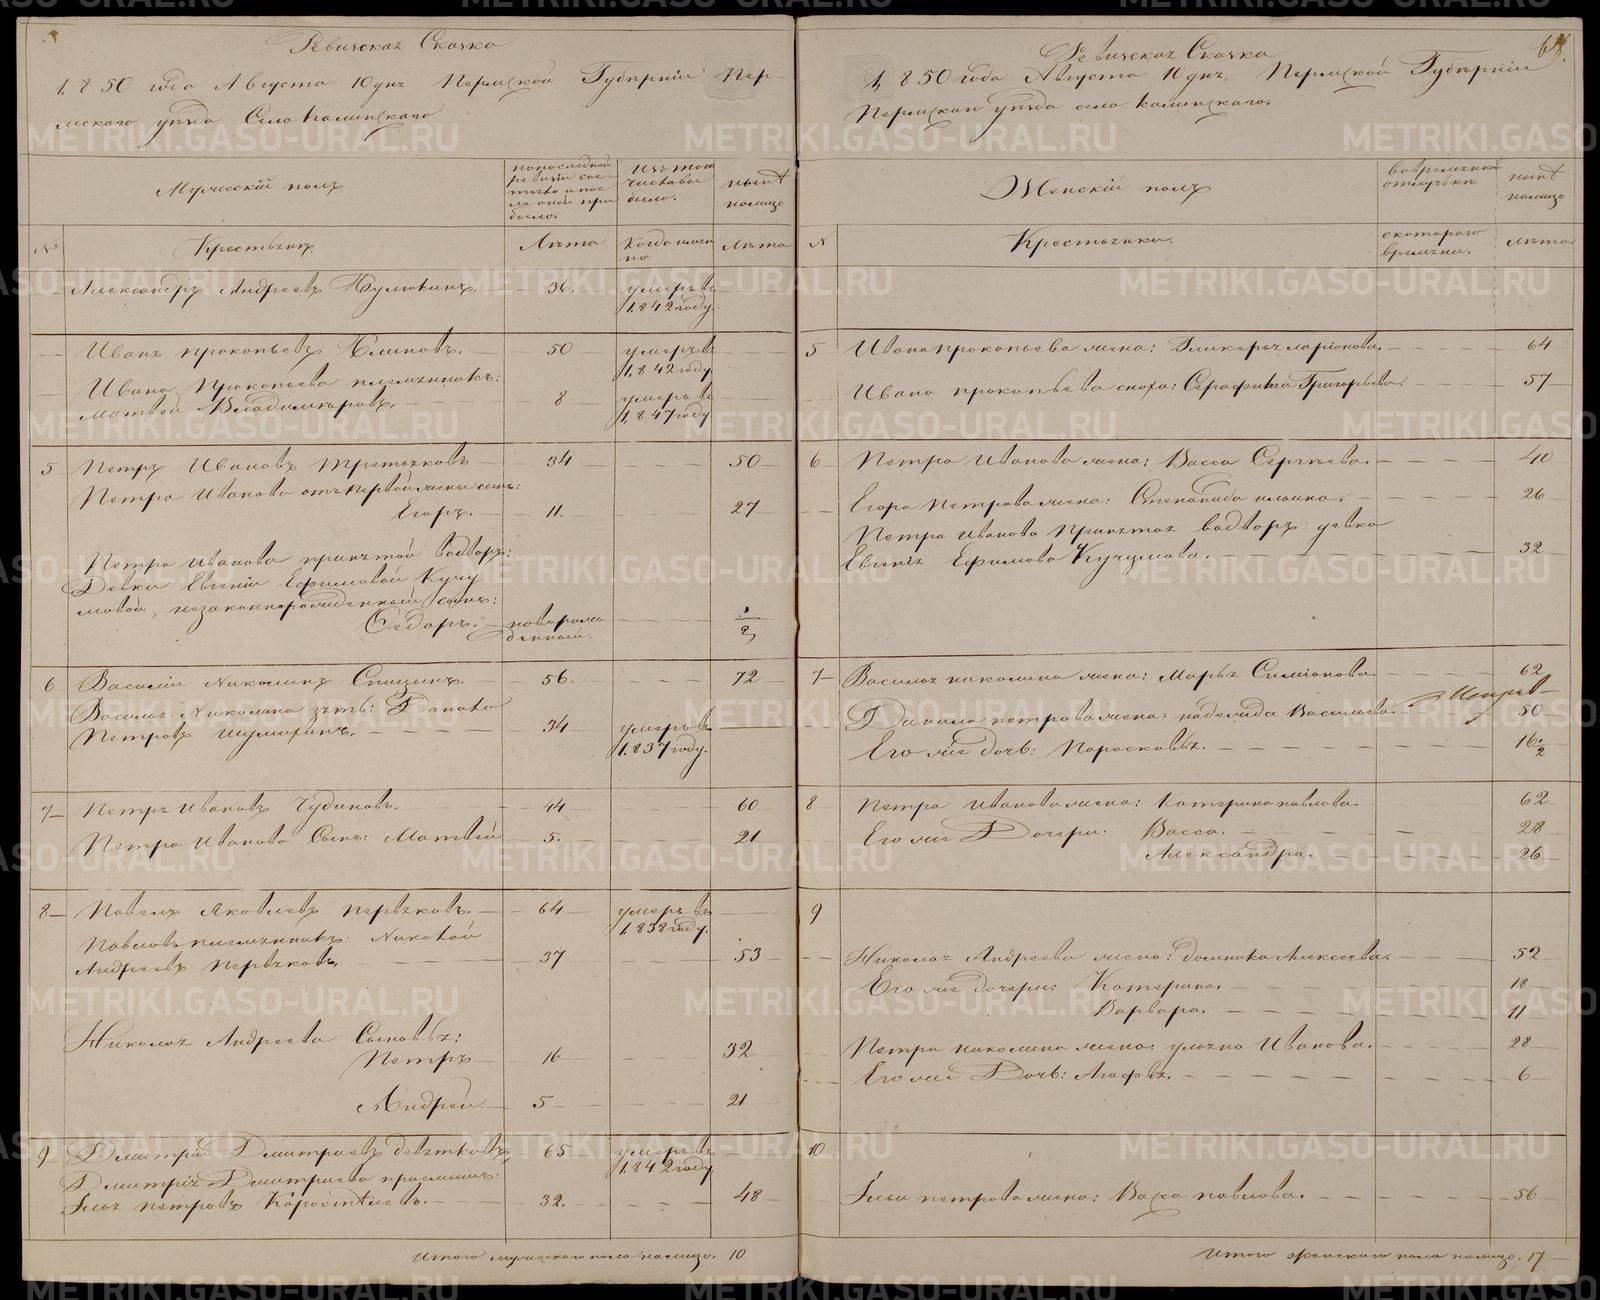 Ревизская Сказка
1850 года Августа 10 дня Пермской Губернiи Пер-
мскаго уѣзда Села
Мужескiй полъ
по последней
ревизiи сос-
тояло и пос-
ле оной при
было.
изъ того
числа вы
было.
нынѣ
налицо
№
Крестьяня
Лѣта
Когда имен
но
Лѣта
Александръ Андреевъ
36.
умеръ въ
1842 году.
Иванъ Прокопьевъ Блиновъ.
50
умеръ въ
1842 году
Ивана Прокопьева племянникъ:
Матвей Владимировъ.
8
умеръ въ
1847 году
5
Петръ Ивановъ Третьяковъ
34
50
Петра Иванова отъ первой жены сынъ:
Егоръ.
11.
27
Петра Иванова принятой вдворъ:
Девки Евгенiи Ефимовой Кучу
мовой, незаконнорожденный сынъ:
Федоръ.
новорож
денный.
1/2
6
Василiй Николинъ Спицынъ.
56.
72
Василья Николина зять: Данило
Петровъ Шумихинъ.
34
умеръ въ
1837 году.
7
Петръ Ивановъ Чудиновъ.
44
60
Петра Иванова Сынъ: Матвей
5.
21
8
Павелъ Яковлевъ Первяковъ.
64
умеръ въ
1838 году.
Павловъ племянникъ: Николай
Андреевъ Первяковъ.
37
53
Николая Андреева Сыновья:
Петръ
16
32
Андрей.
5
21
9
Дмитрiй Дмитрiевъ Девятковъ
65
умеръ въ
1842 году
Дмитрiя Дмитрiева прiемышъ:
Илья Петровъ Коростелевъ.
32.
48
Итого мужескаго пола налицо. 10
Ревизская Сказка
1850 года Августа 10 дня, Пермской Губернiи
Пермскаго уѣзда села
Женскiй полъ
во временной
отлучкѣ
нынѣ
налицо
№
Крестьянки.
скотораго
времяни.
лѣта
5
Ивана Прокопьева жена: Гликерья Ларионова.
64
Ивана Прокопьева сноха: Серафима Григорьева.
57
6
Петра Иванова жена: Васса Сергѣева.
40
Егора Петрова жена: Степанида Ильина.
26
Петра Иванова Принятая вдворъ: девка
Евгенiя Ефимова Кучумова.
32
7
Василья Николина жена: Марья Симiонова.
62
Данила Петрова жена: Надежда Васильева.
50
Его же дочь: Парасковья.
16 1/2
8
Петра Иванова жена: Катерина Павлова.
62
Его же Дочери: Васса.
28
Александра.
26
9
Николая Андреева жена: Домника Алексеева.
52
Его же дочери: Катерина.
18
Варвара.
11
Петра Николина жена: Ульяна Иванова.
28
Его же Дочь: Агафья.
6
10
Ильи Петрова жена: Васса Павлова.
56
Итого женскаго пола налицо. 17
METRIKI.GASO-URAL.RU